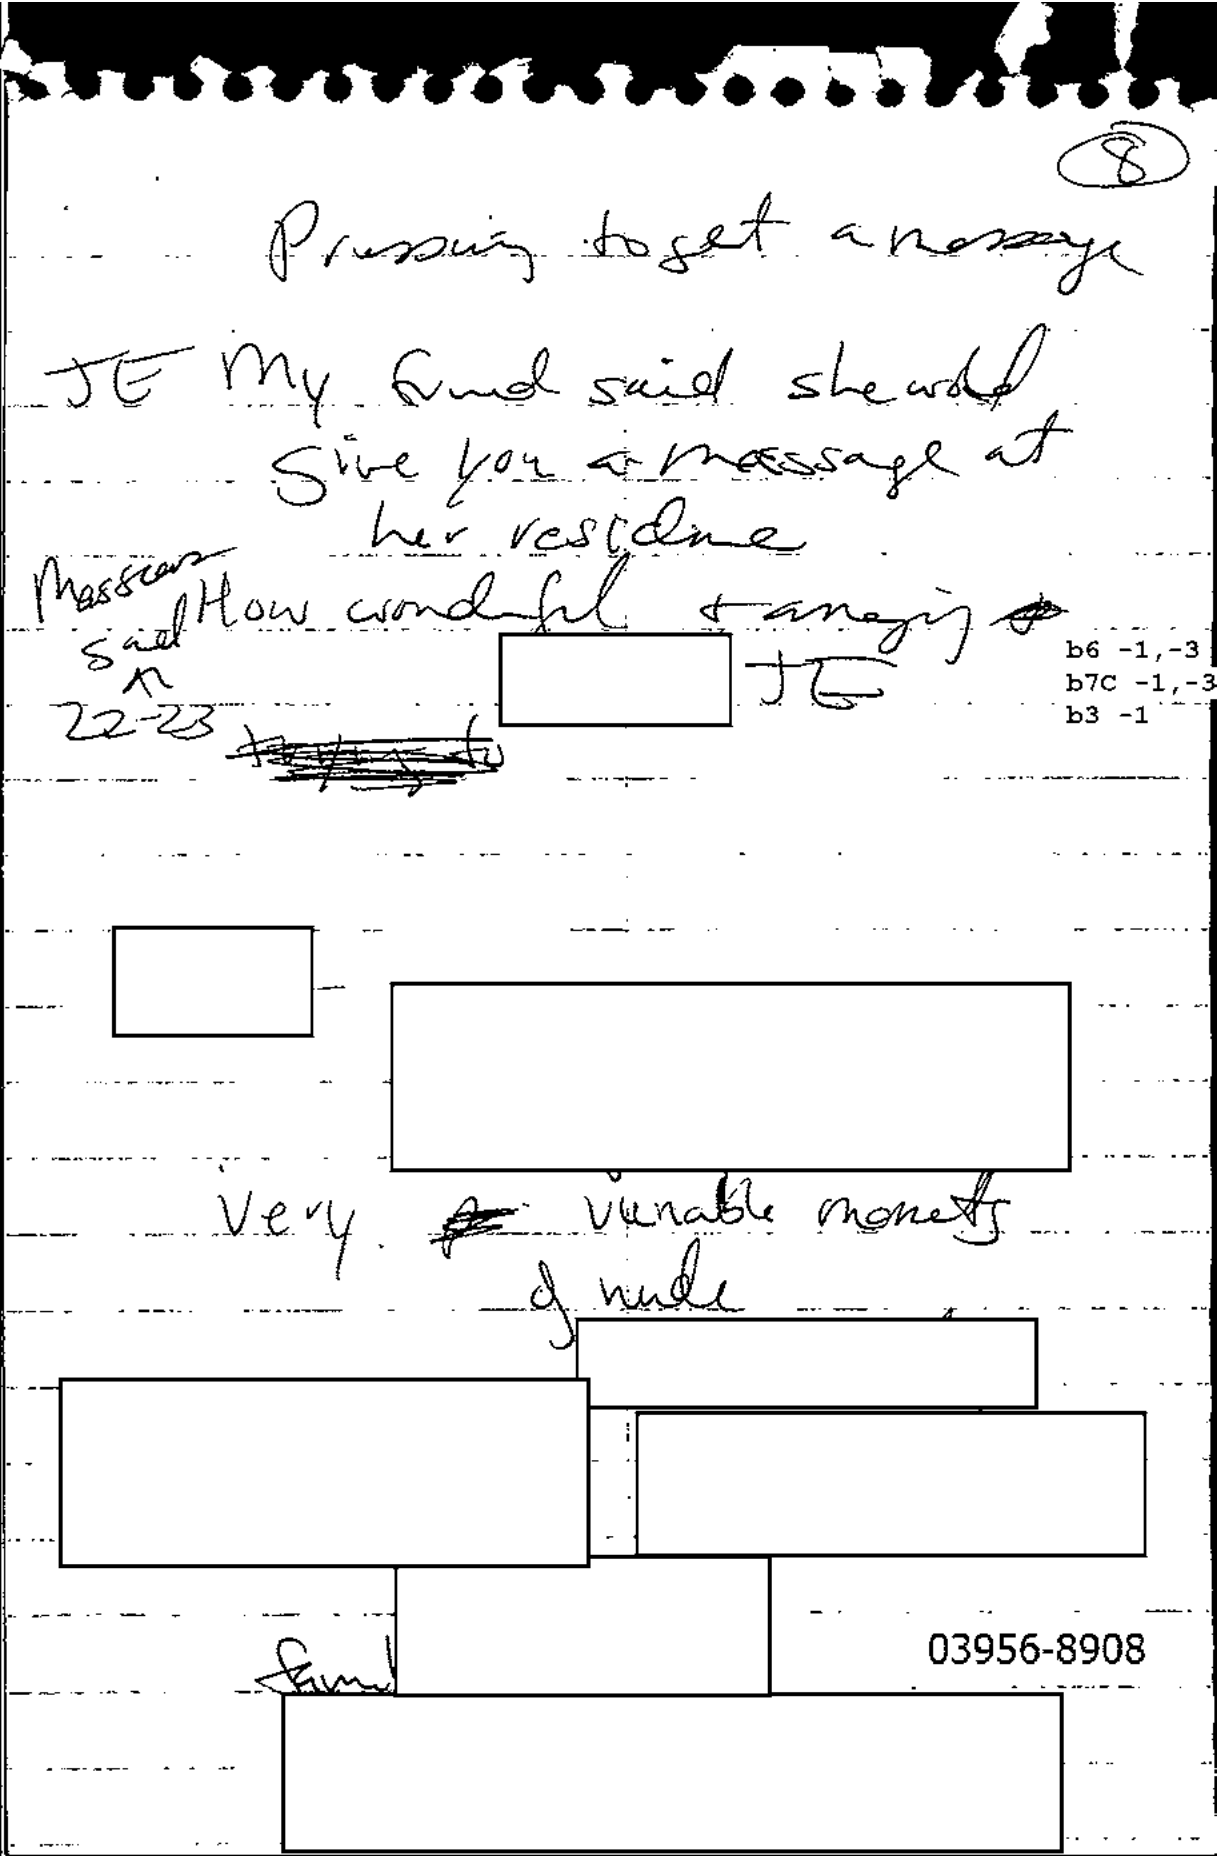 8
Pressuring to get a message
JE My friend said she wold
give you a messsage at
her residme
Masseuse said How wonderful + amazing
22-23 JE
b6 -1,-3
b7C -1,-3
b3 -1
Very monets
of nude
03956-8908
found